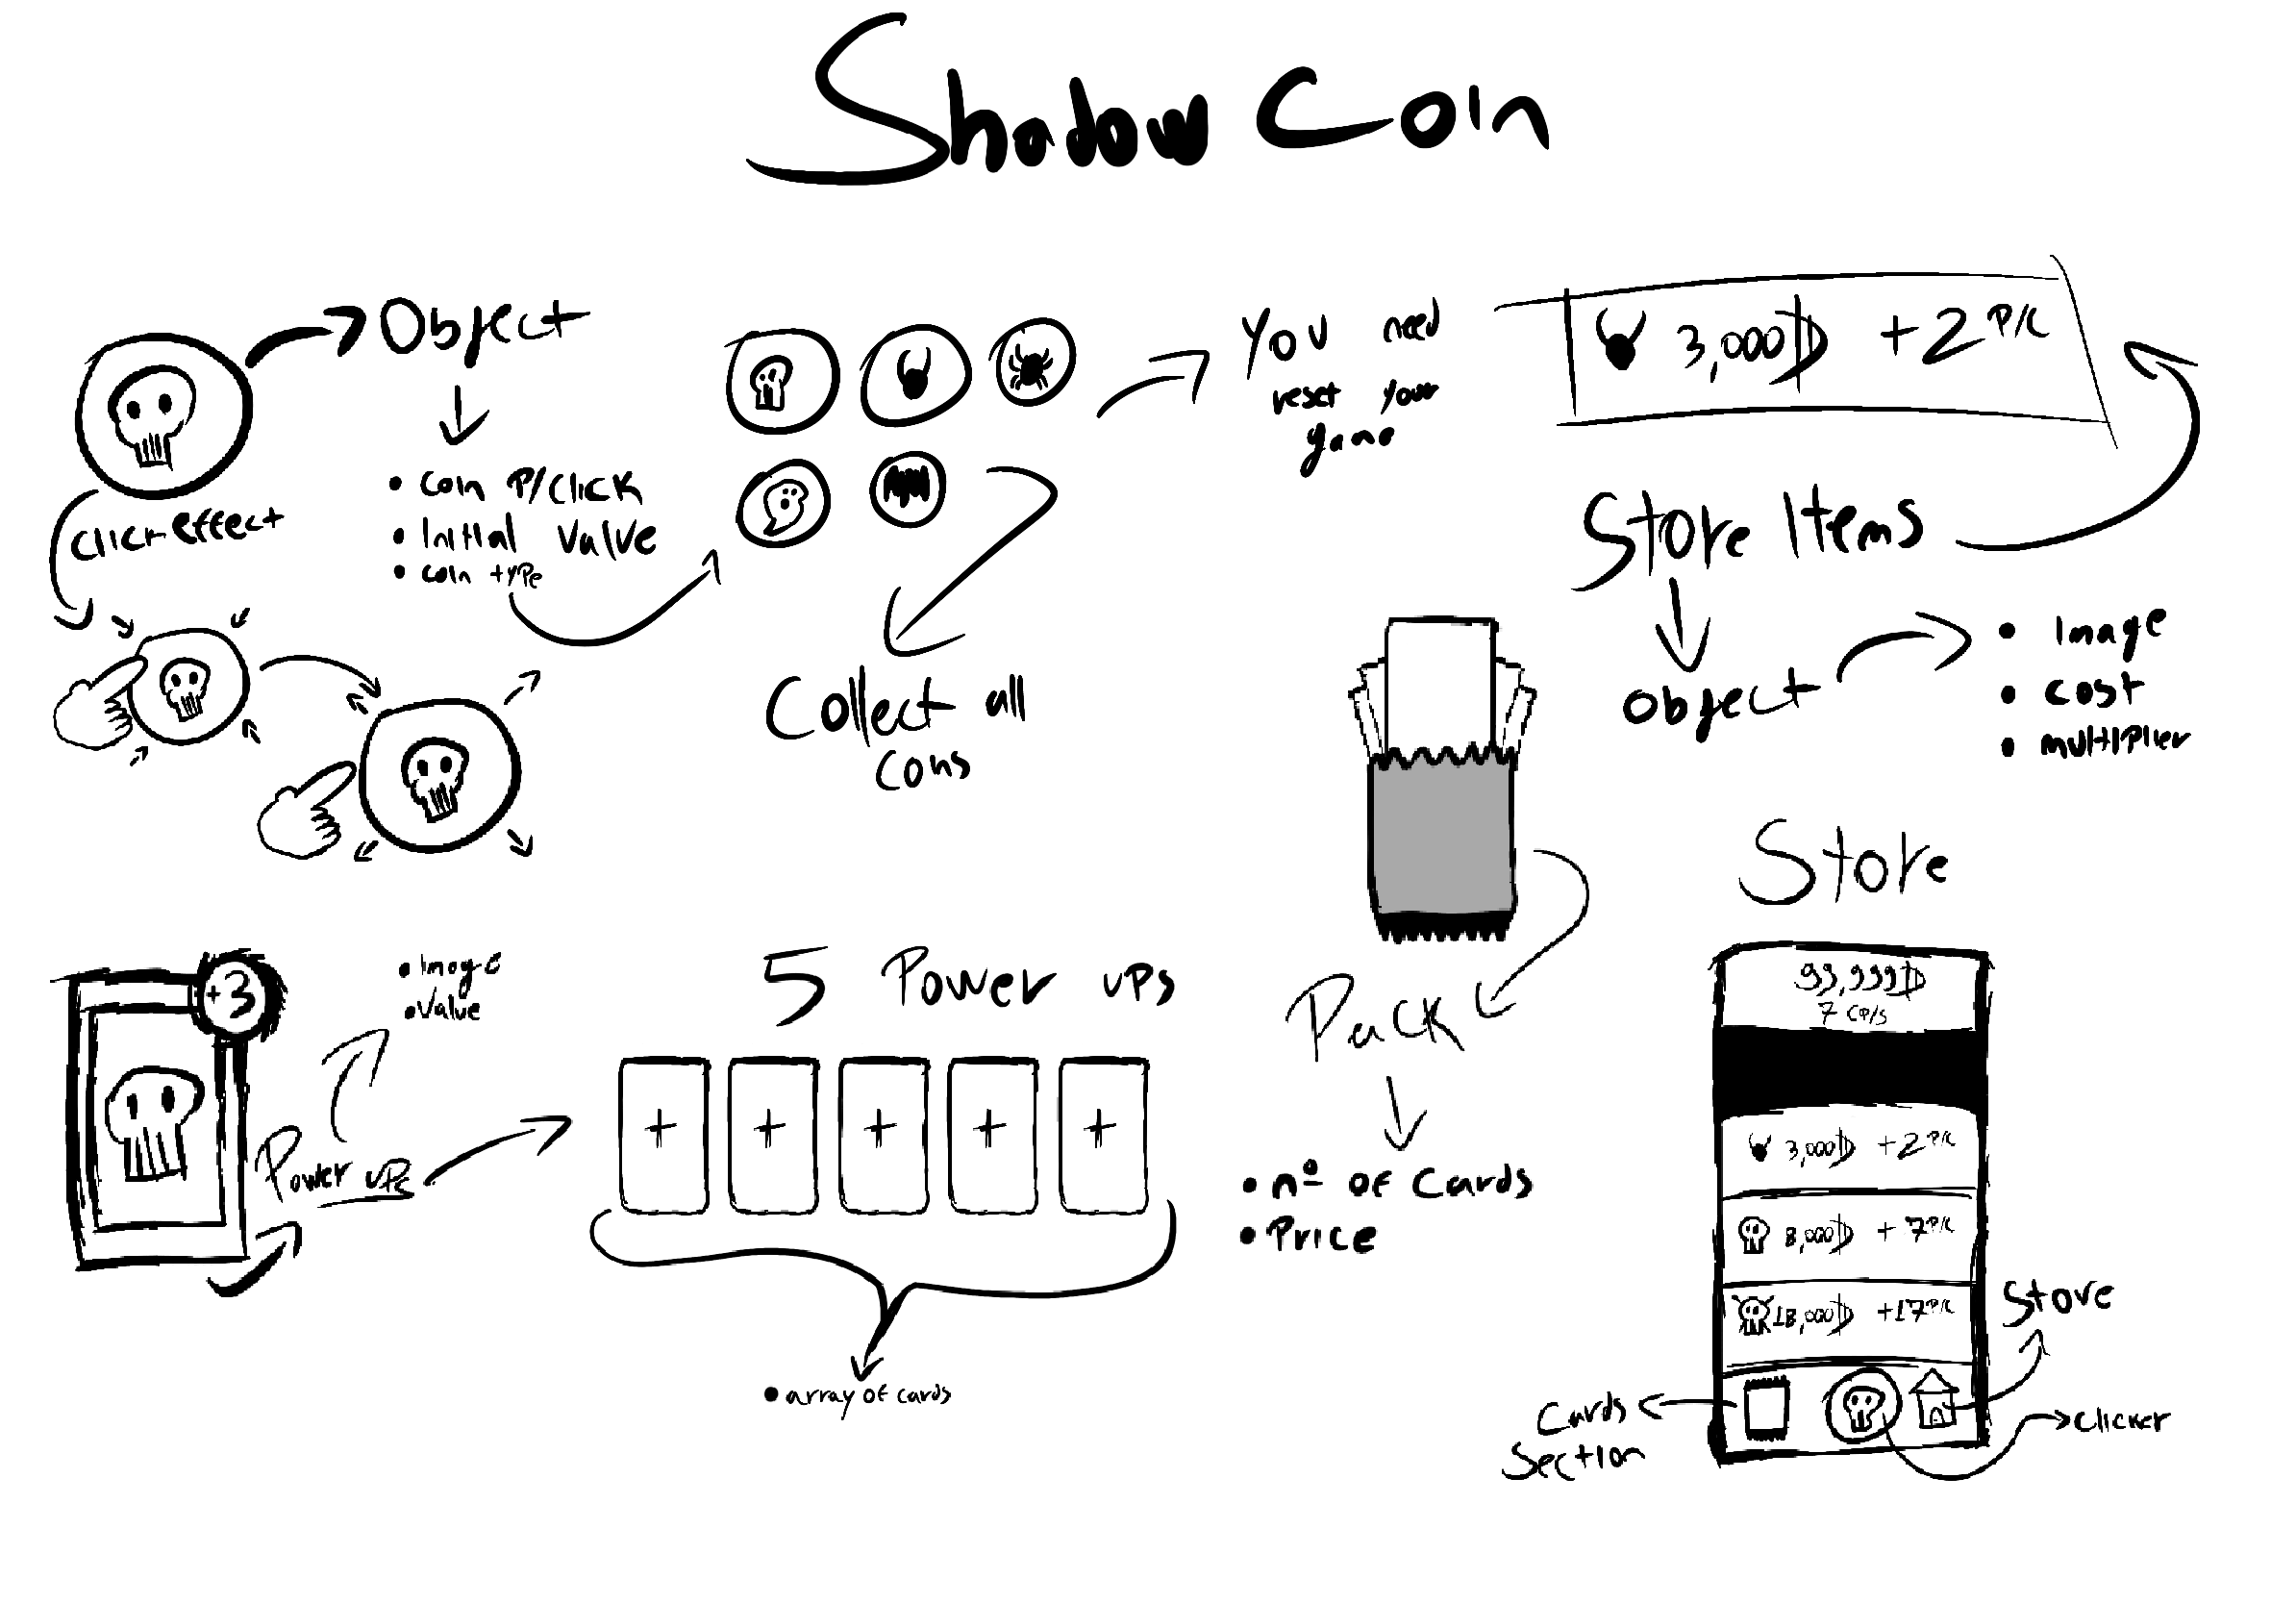 Shadow Coin
Object
• Coin P/Click
• Initial Value
• Coin type
Click effect
Collect all
Cons
You need
reset your
game
3,000 +2 P/C
Store Items
Object
• Image
• Cost
• Multiplier
+3
• Image
• Value
Power ups
5 Power ups
+ + + + +
• array of cards
Pack
• nº of Cards
• Price
Store
99,999
7 CP/s
3,000 +2 P/C
8,000 +7 P/C
18,000 +17 P/C
Store
Cards
Section
Clicker